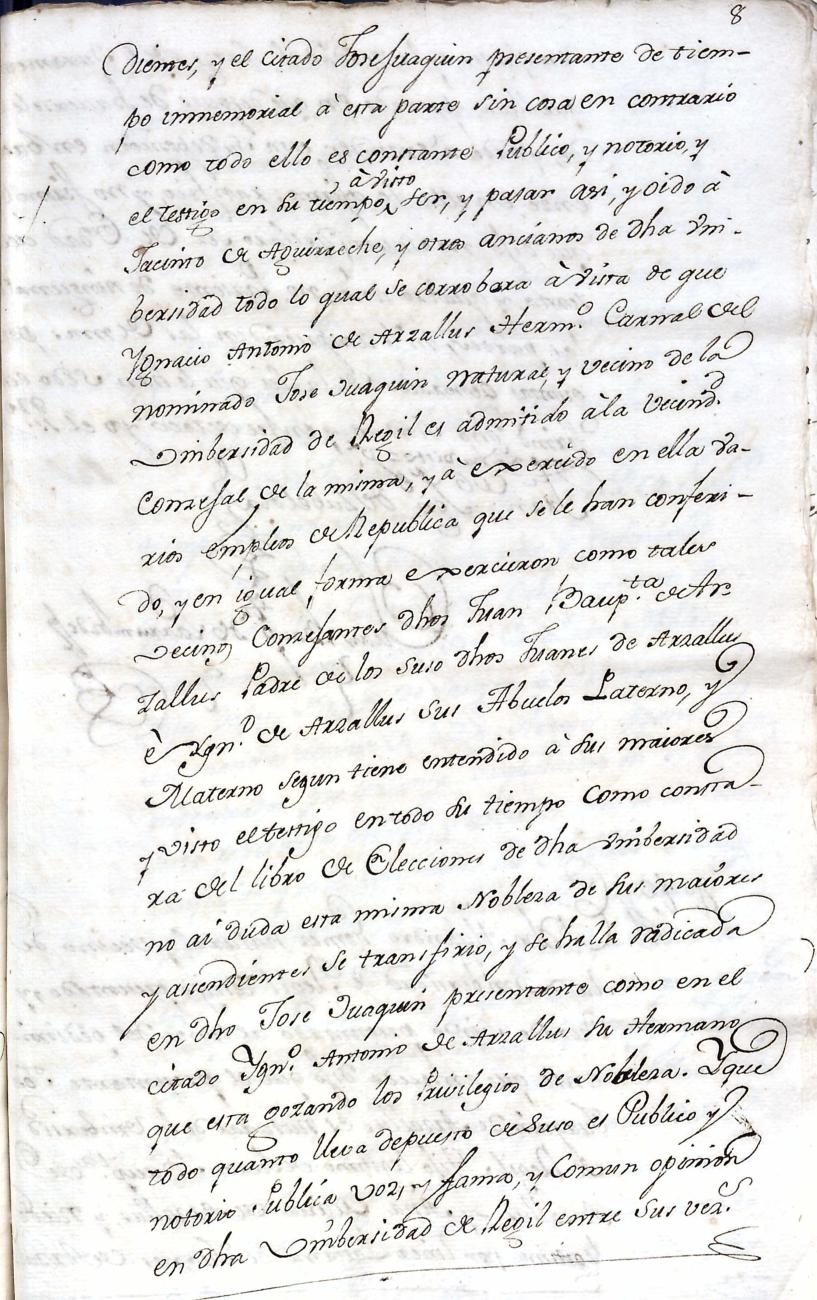 8
dientes, y el citado Jose Juaquin presentante de tiem-
po inmemorial à esta parte sin cosa en contrario
como todo ello es constante Publico, y notorio, y
à visto
el testigo en su tiempo ser, y pasar asi, y oido à
Jacinto de Aguirreche, y otros ancianos de dha vni-
bersidad todo lo qual se corrobora à vista de que
Ygnacio Antonio de Arzallus Herm.º Carnal del
nominado Jose Juaquin natural, y vecino de la
Vnibersidad de Regil es admitido à la Vecind.d
Conzejal de la misma, y à exercido en ella va-
rios empleos de Republica que se le han conferi-
do, y en igual forma exercieron como tales
vecinos Conzejantes dhos Juan Baup.ta de Ar-
zallus Padre de los suso dhos Juanes de Arzallus
è Ygn.º de Arzallus sus Abuelos Paterno, y
Materno segun tiene entendido à sus maiores
y visto el testigo en todo su tiempo como consta-
rá del libro de Elecciones de dha vnibersidad
no ai duda esta misma Nobleza de sus maiores
y ascendientes se transfirio, y se halla radicada
en dho Jose Juaquin presentante como en el
citado Ygn.º Antonio de Arzallus su Hermano
que esta gozando los Privilegios de Nobleza. Y que
todo quanto lleva depuesto de suso es Publico y
notorio Publica voz, y fama, y Comun opinion
en dha Vnibersidad de Regil entre sus vez.s